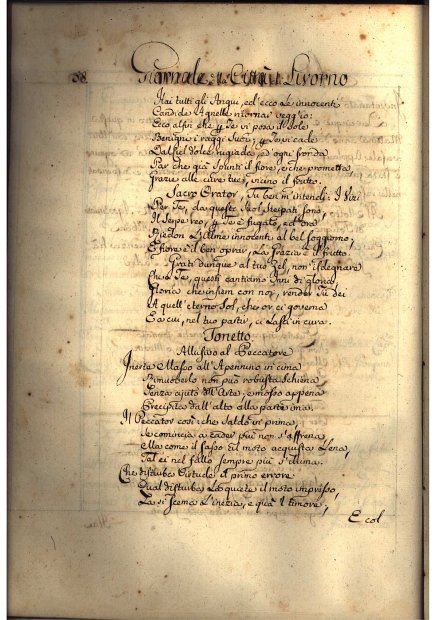 38 Giornale Città Livorno
Hai tutti gli Angui, ed'ecco Le innocenti
Candide Agnelle
Ecco alfin che Te vi posa il Sole
Benigni i raggi Suoi, cade
Dal Ciel dolce rugiada, ed ogni fronda
Par che già Spunti il fiore, e che prometta
Grazie alle cure tue, vicino il frutto.
Sacro Orator, Tu ben m'intendi: I Vizi
Per Te, da questo Suol, sterpati sono,
Il Serpe reo, Te è fugato, ed'ora
Riedon L'Alme innocenti al bel soggiorno,
E' fiore è il ben oprar, La Grazia è il frutto.
Grati dunque al tuo Zel, non isdegnare
Che a Te, questi cantiamo Inni di gloria
Gloria che insiem con noi, render Tu dei
A quell'eterno Sol, che or ci governa
E a cui, nel tuo partir, ci Lasci in cura.
Sonetto
Allusivo al Peccatore
Inerte Masso all'Apennino in cima
Rimuoverlo non può robusta Schiena
Senza ajuto d'Arte, e mosso appena
Precipita dall'alto alla parte ima.
Il Peccator così: che Saldo in prima,
Se comincia a cader più non s'affrena
Ma come il Sasso il moto acquista Lena,
Tal ei nel fallo sempre più
Che disturba Virtude il primo errore
Qual disturba La quiete il moto impresso,
La si scema L'inerzia, e quà 'l timore,
E col